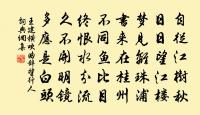 自從江樹秋
日日望江樓
夢見離珠浦
書來在桂州
不同魚比目
終恨水分流
久不開明鏡
多應是白頭
王建橫吹曲辭望行人
詞典網集